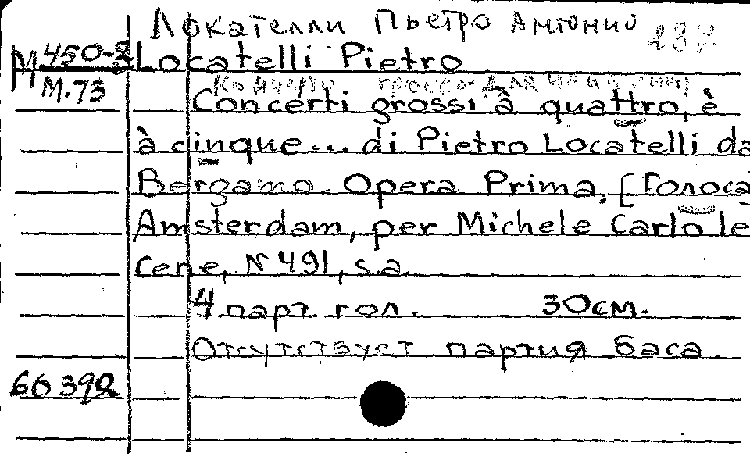 Локателли Пьетро Антонио
M 450-2 Locatelli Pietro
М.73
Concerti grossi à quattro, è
à cinque... di Pietro Locatelli da
Bergamo. Opera Prima. [Голоса]
Amsterdam, per Michele Carlo le
Cene, N 491, s.a.
4 парт. гол. 30 см.
Отсутствует партия баса.
60392